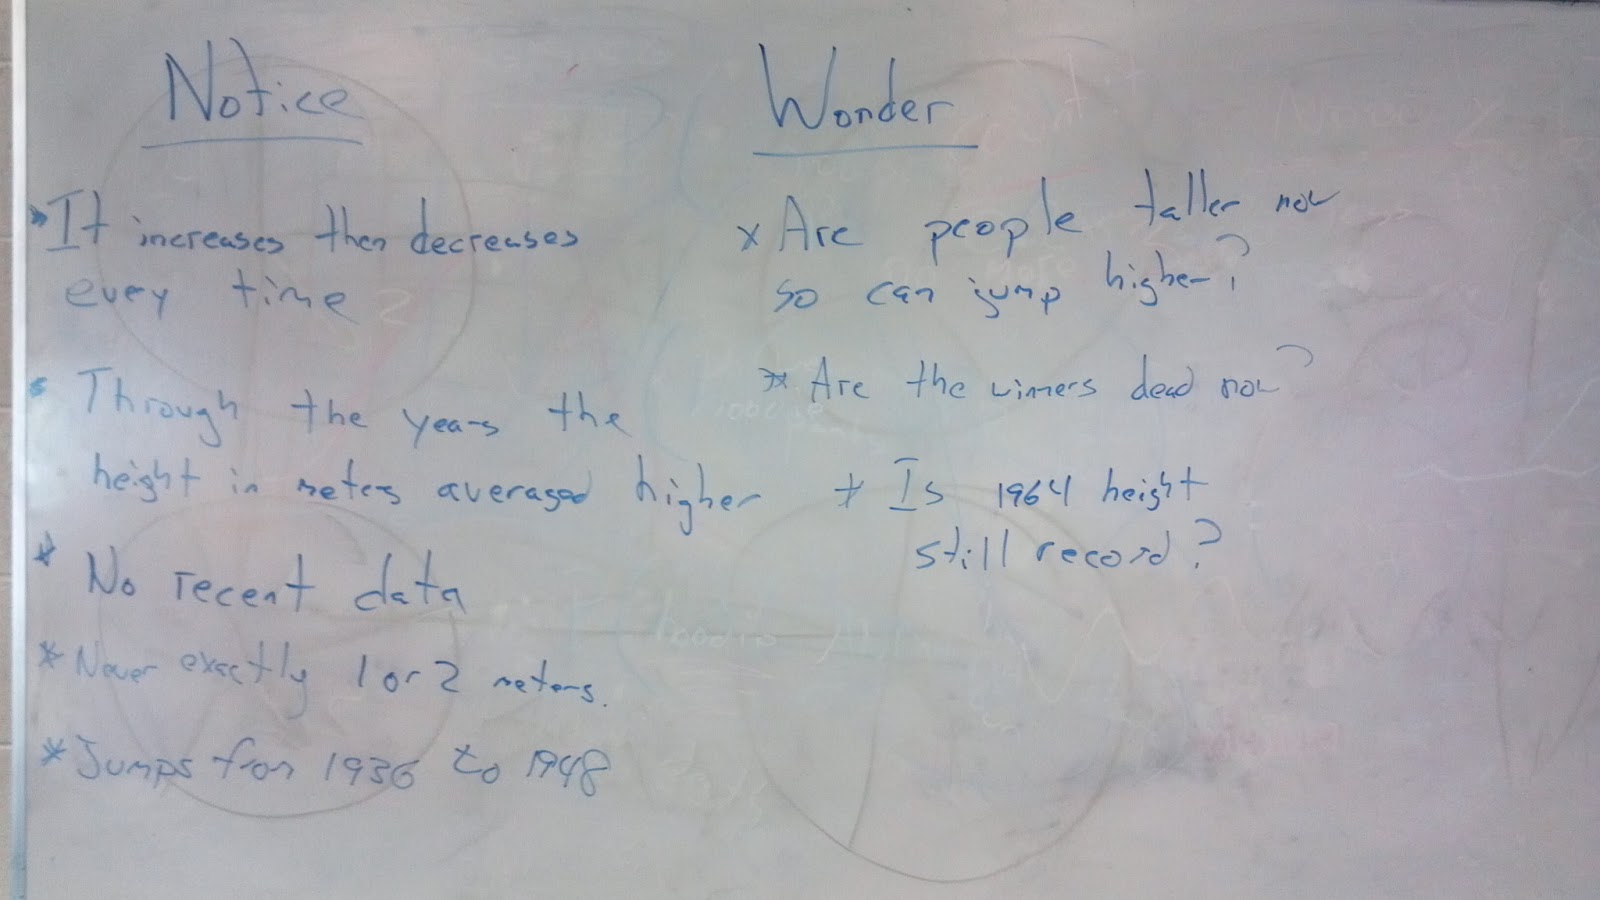 Notice
* It increases then decreases
evey time
* Through the years the
height in meters averaged higher
* No recent data
* Never exactly 1 or 2 meters.
* Jumps from 1936 to 1948
Wonder
* Are people taller now
so can jump higher?
* Are the winners dead now?
* Is 1964 height
still record?